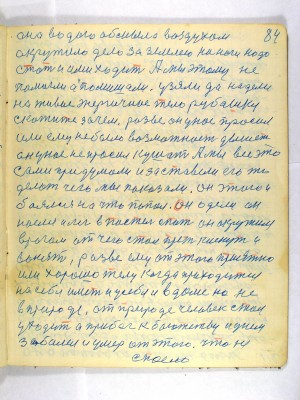 84
она водою обоивила воздухом
окружило дело за землею на ноги надо
стоти или ходит А мы этому не
помогли а помишали. узяли да надели
на живое энергичное тело рубашку
скажите зачем. разве он у нас просил
или ему небыло возможност
он у нас не просил кушат А мы все это
сами придумали и заставили его ж
делат чего мы показали. он этого и
боялся на что попал. он одел он
наелся и лег в постел спат он окружим
врагом от чего стал прет киснут и
вонят, разве ему от этого приятно
или хорошо телу когда приходится
на себя имет и у себя и в доме но не
в природе, от природе человек стал
уходит а прибег к богатству и днем
заболел и умер от этого. что н
споено